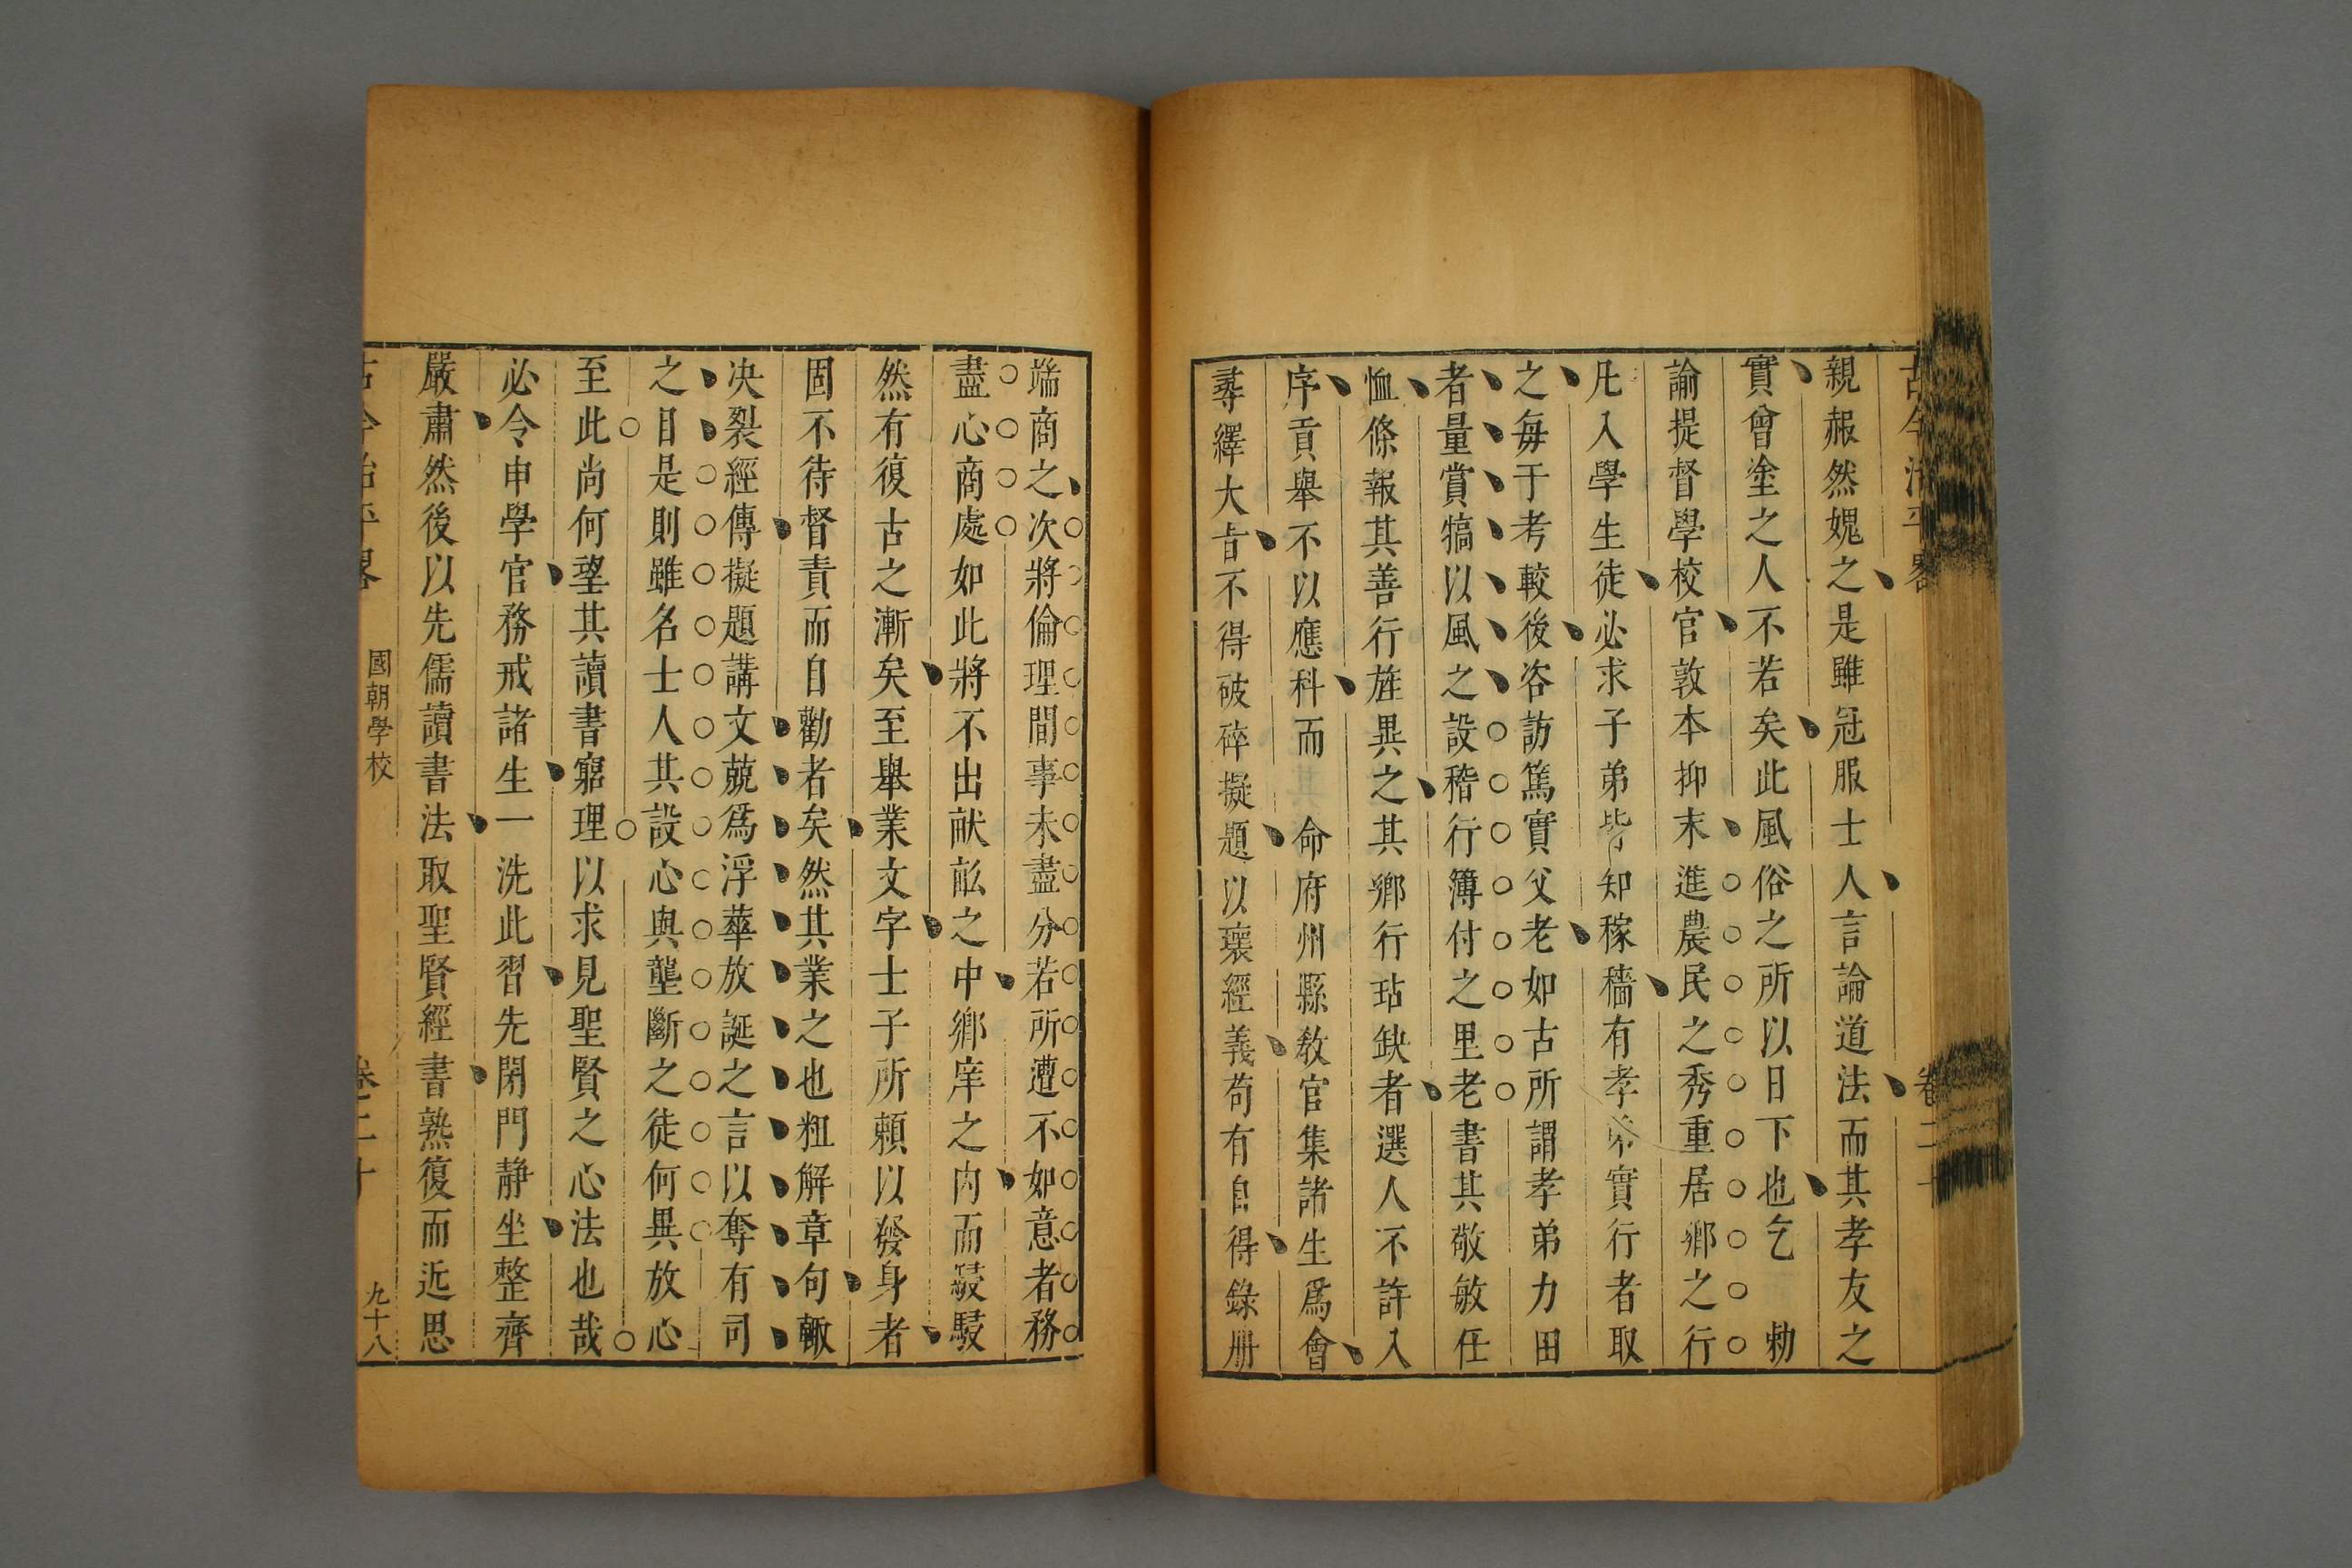 古今治平畧 卷二十
親赧然媿之是雖冠服士人言論道法而其孝友之
實曾塗之人不若矣此風俗之所以日下也乞 勅
諭提督學校官敦本抑末進農民之秀重居鄉之行
凡入學生徒必求子弟皆知稼穡有孝弟實行者取
之每于考較後咨訪篤實父老如古所謂孝弟力田
者量賞犒以風之設稽行簿付之里老書其敬敏任
恤條報其善行旌異之其鄉行玷缺者選人不許入
序貢舉不以應科而 命府州縣教官集諸生爲會
尋繹大旨不得破碎擬題以壞經義苟有自得錄册
端商之次將倫理間事未盡分若所遭不如意者務
盡心商處如此將不出畎畝之中鄉庠之内而駸駸
然有復古之漸矣至舉業文字士子所頼以發身者
固不待督責而自勸者矣然其業之也粗解章句輙
决裂經傳擬題講文兢爲浮華放誕之言以奪有司
之目是則雖名士人其設心與壟斷之徒何異放心
至此尚何望其讀書窮理以求見聖賢之心法也哉
必令申學官務戒諸生一洗此習先閉門静坐整齊
嚴肅然後以先儒讀書法取聖賢經書熟復而近思
古今治平畧 國朝學校 卷二十 九十八